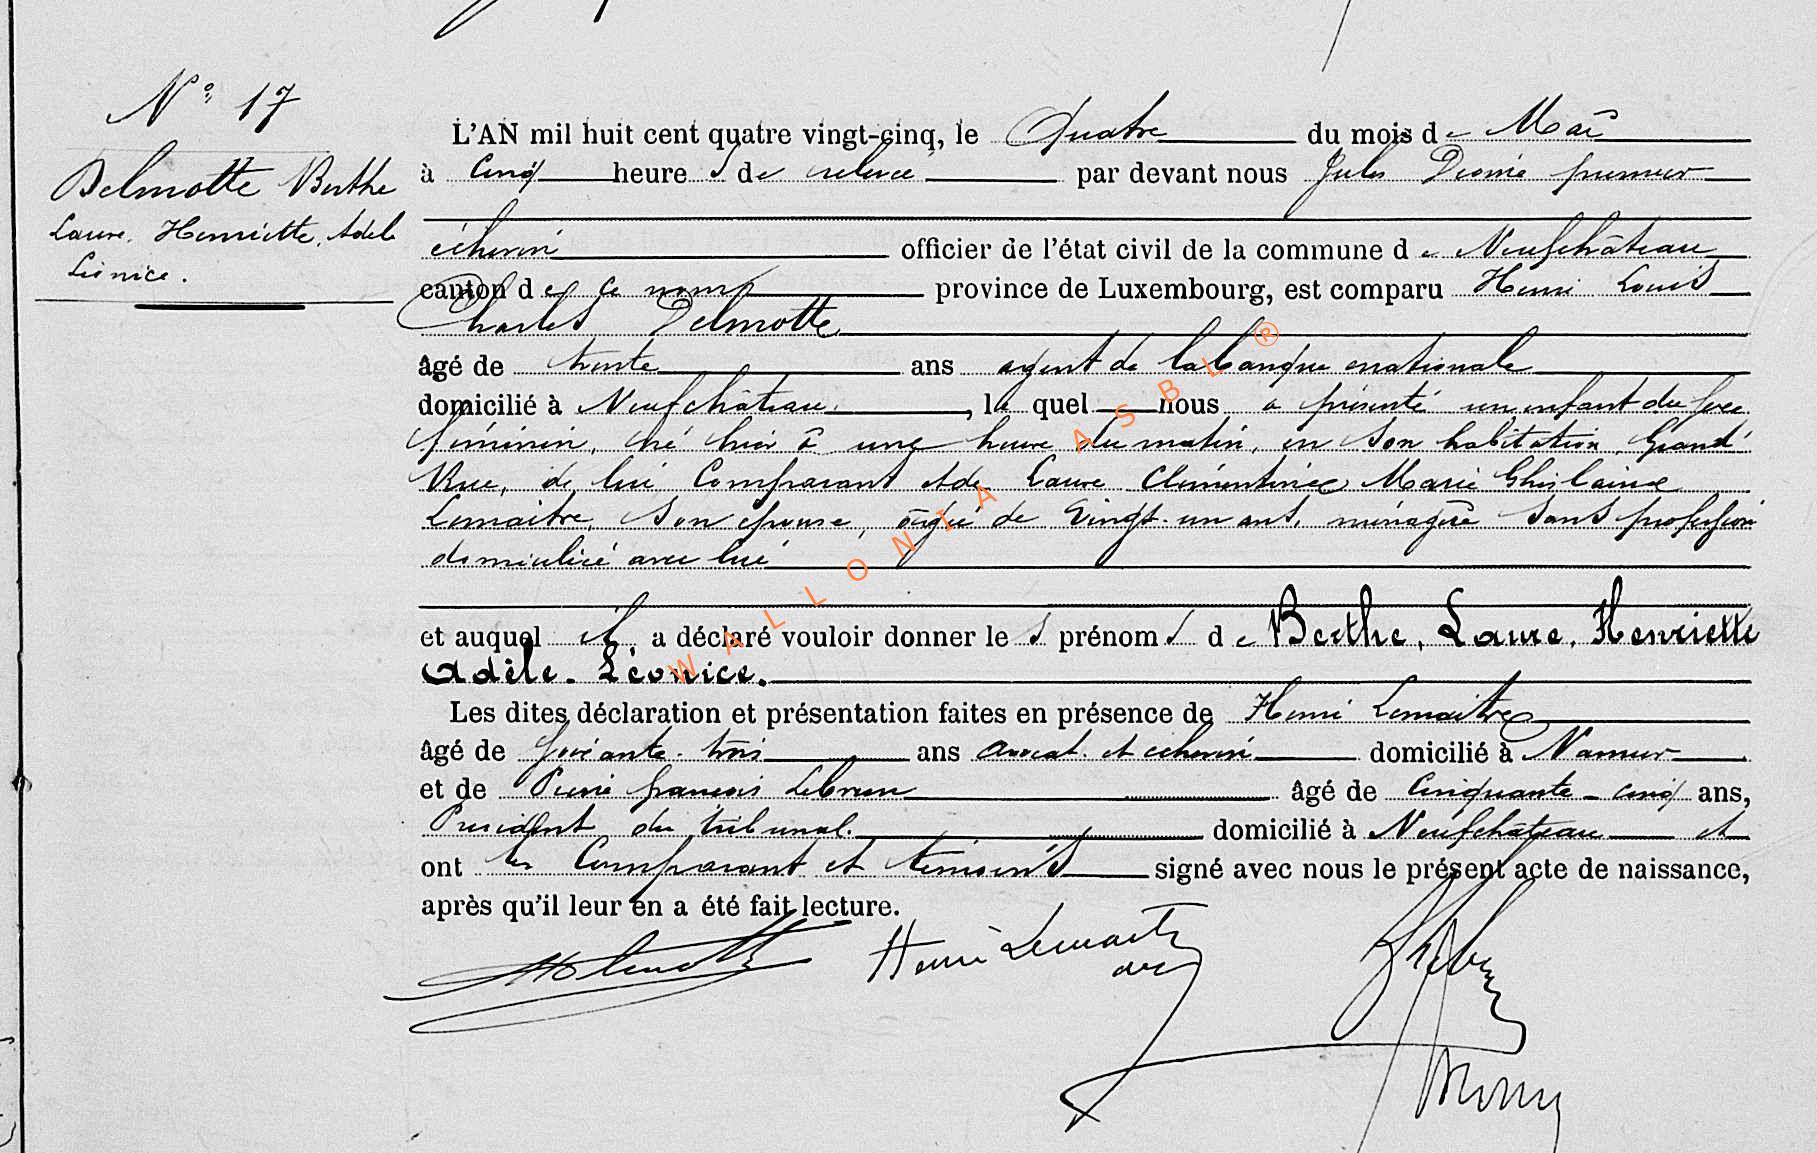 N° 17
Delmotte Berthe
Laure, Henriette, Adèle
Léonice.
L'AN mil huit cent quatre vingt-cinq, le Quatre du mois de Mai
à Cinq heures de relevée par devant nous Jules premier
échevin officier de l'état civil de la commune de Neufchâteau
canton de ce nom province de Luxembourg, est comparu Henri Louis
Charles Delmotte
âgé de trente ans agent de la banque nationale
domicilié à Neufchâteau, le quel nous a présenté un enfant du sexe
féminin, né hier à une heure du matin, en son habitation, Grand'
Rue, de lui Comparant et de Laure Clémentine Marie Ghislaine
Lemaitre, son épouse, âgée de Vingt-un ans, ménagère sans profession
domiciliée avec lui
et auquel il a déclaré vouloir donner les prénoms de Berthe, Laure, Henriette
Adèle. Léonice.
Les dites déclaration et présentation faites en présence de Henri Lemaitre
âgé de soixante-trois ans avocat et échevin domicilié à Namur
et de Pierre françois Lebrun âgé de Cinquante-cinq ans,
Président du tribunal. domicilié à Neufchâteau et
ont les Comparant et témoins signé avec nous le présent acte de naissance,
après qu'il leur en a été fait lecture.
HDelmotte Henri Lemaitre
WALLONIA ASBL ®